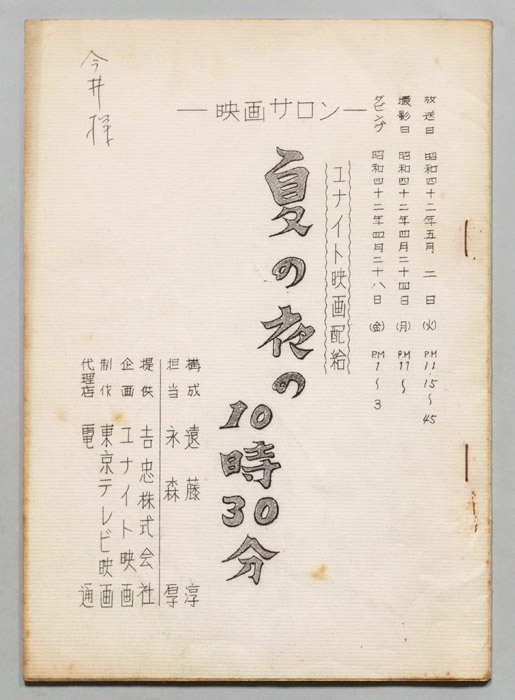 放送日 昭和四十二年五月 二 日 (火) P.M 11.15〜45
撮影日 昭和四十二年四月二十四日 (月) P.M 11〜
ダビング 昭和四十二年四月二十八日 (金) P.M 1〜3
ユナイト映画配給
―映画サロン―
夏の夜の10時30分
構成 遠藤 淳
担当 永森 厚
提供 吉忠株式会社
企画 ユナイト映画
制作 東京テレビ映画
代理店 電通
今井様